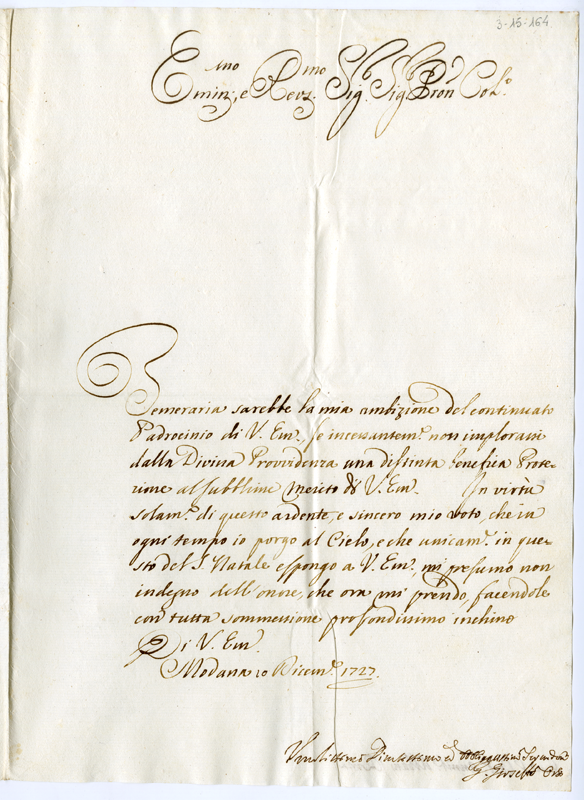 3-15-164
Emin:mo, e Rev:mo Sig: Sig: Pron Col:o
Temeraria sarebbe la mia ambizione del continuato
Padrocinio di V. Em:, se incessantem:e non implorassi
dalla Divina Provvidenza una distinta benefica Prote-
zione al sublime merito di V. Em:. In virtù
solam:e di questo ardente, e sincero mio voto, che in
ogni tempo io porgo al Cielo, e che unicam:e in que-
sto del S. Natale espongo a V. Em:, mi presumo non
indegno dell'onore, che ora mi prendo, facendole
con tutta sommessione profondissimo inchino
Di V. Em:
Modana 20 Dicem:e 1727.
Umilissimo Divotissimo ed Obbligatissimo